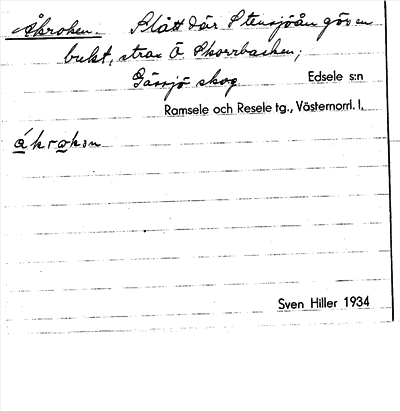 Åkroken. Slått där Stensjöån gör en
bukt, strax Ö Skorrbacken;
Gårsjö skog Edsele s:n
Ramsele och Resele tg., Västernorrl. l.
ákrokən
Sven Hiller 1934